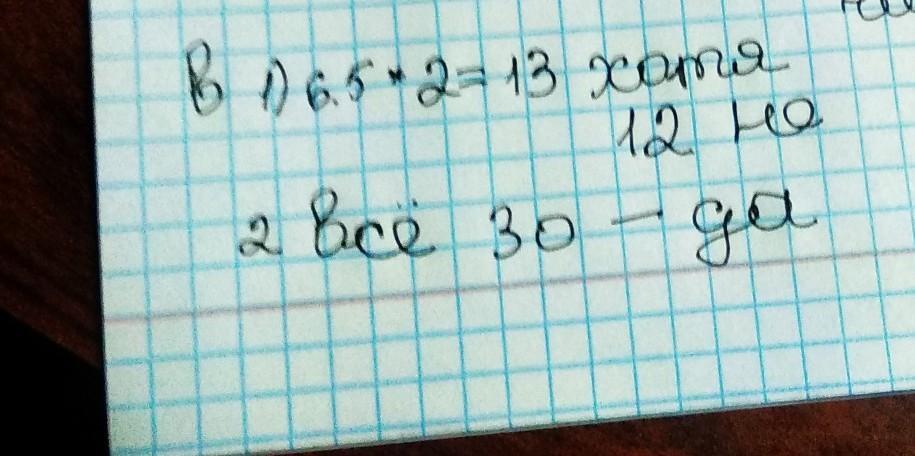 В 1) 6.5 * 2 = 13 хотя
12 но
2 Всё 30 - да